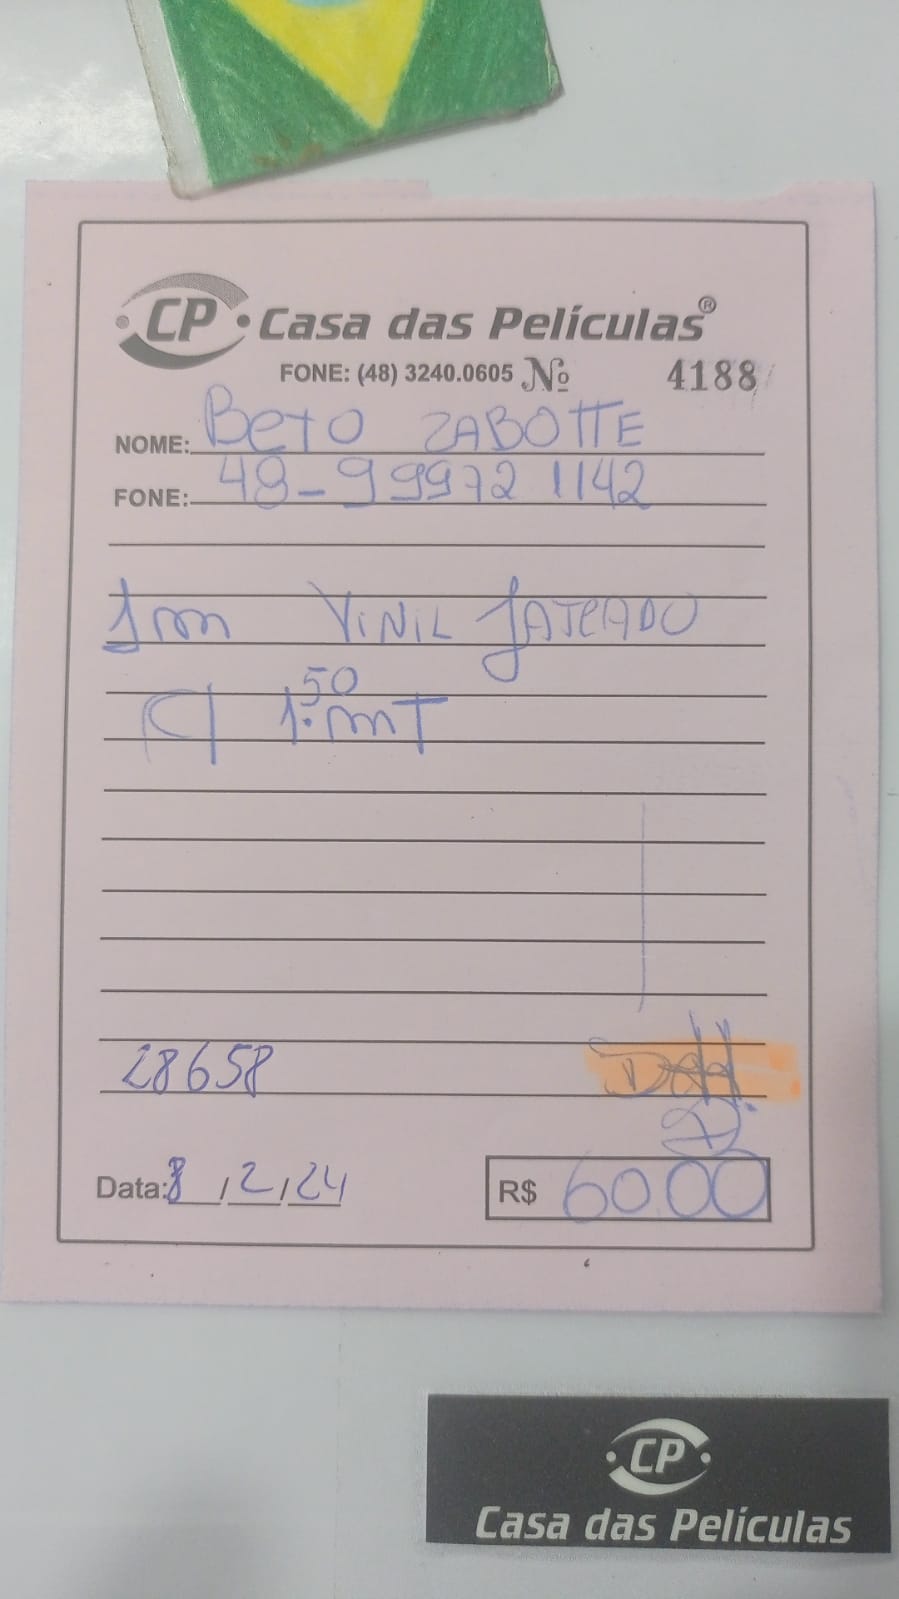 CP Casa das Películas®
FONE: (48) 3240.0605 Nº 4188
NOME: Beto ZABOTTE
FONE: 48-99972 1142
1m VINIL JATEADO
C/ 1.50 mT
28658
Data: 8/2/24 R$ 60.00
CP
Casa das Películas